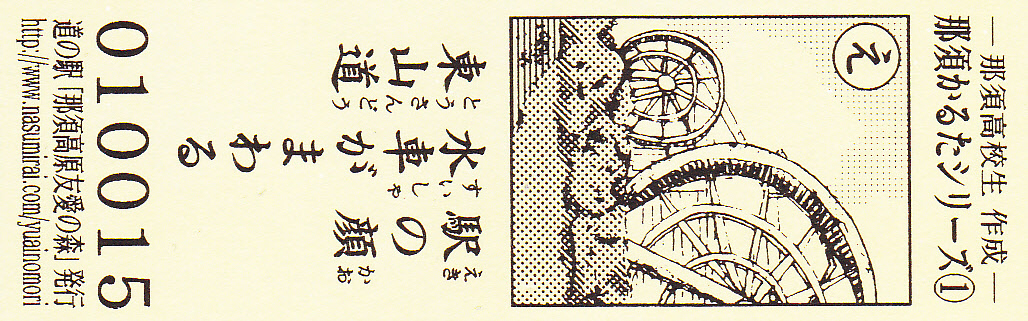 ―那須高校生 作成―
那須かるたシリーズ①
え
駅の顔
えき かお
水車がまわる
すいしゃ
東山道
とうさんどう
010015
道の駅「那須高原友愛の森」発行
http://www.nasumirai.com/yuainomori